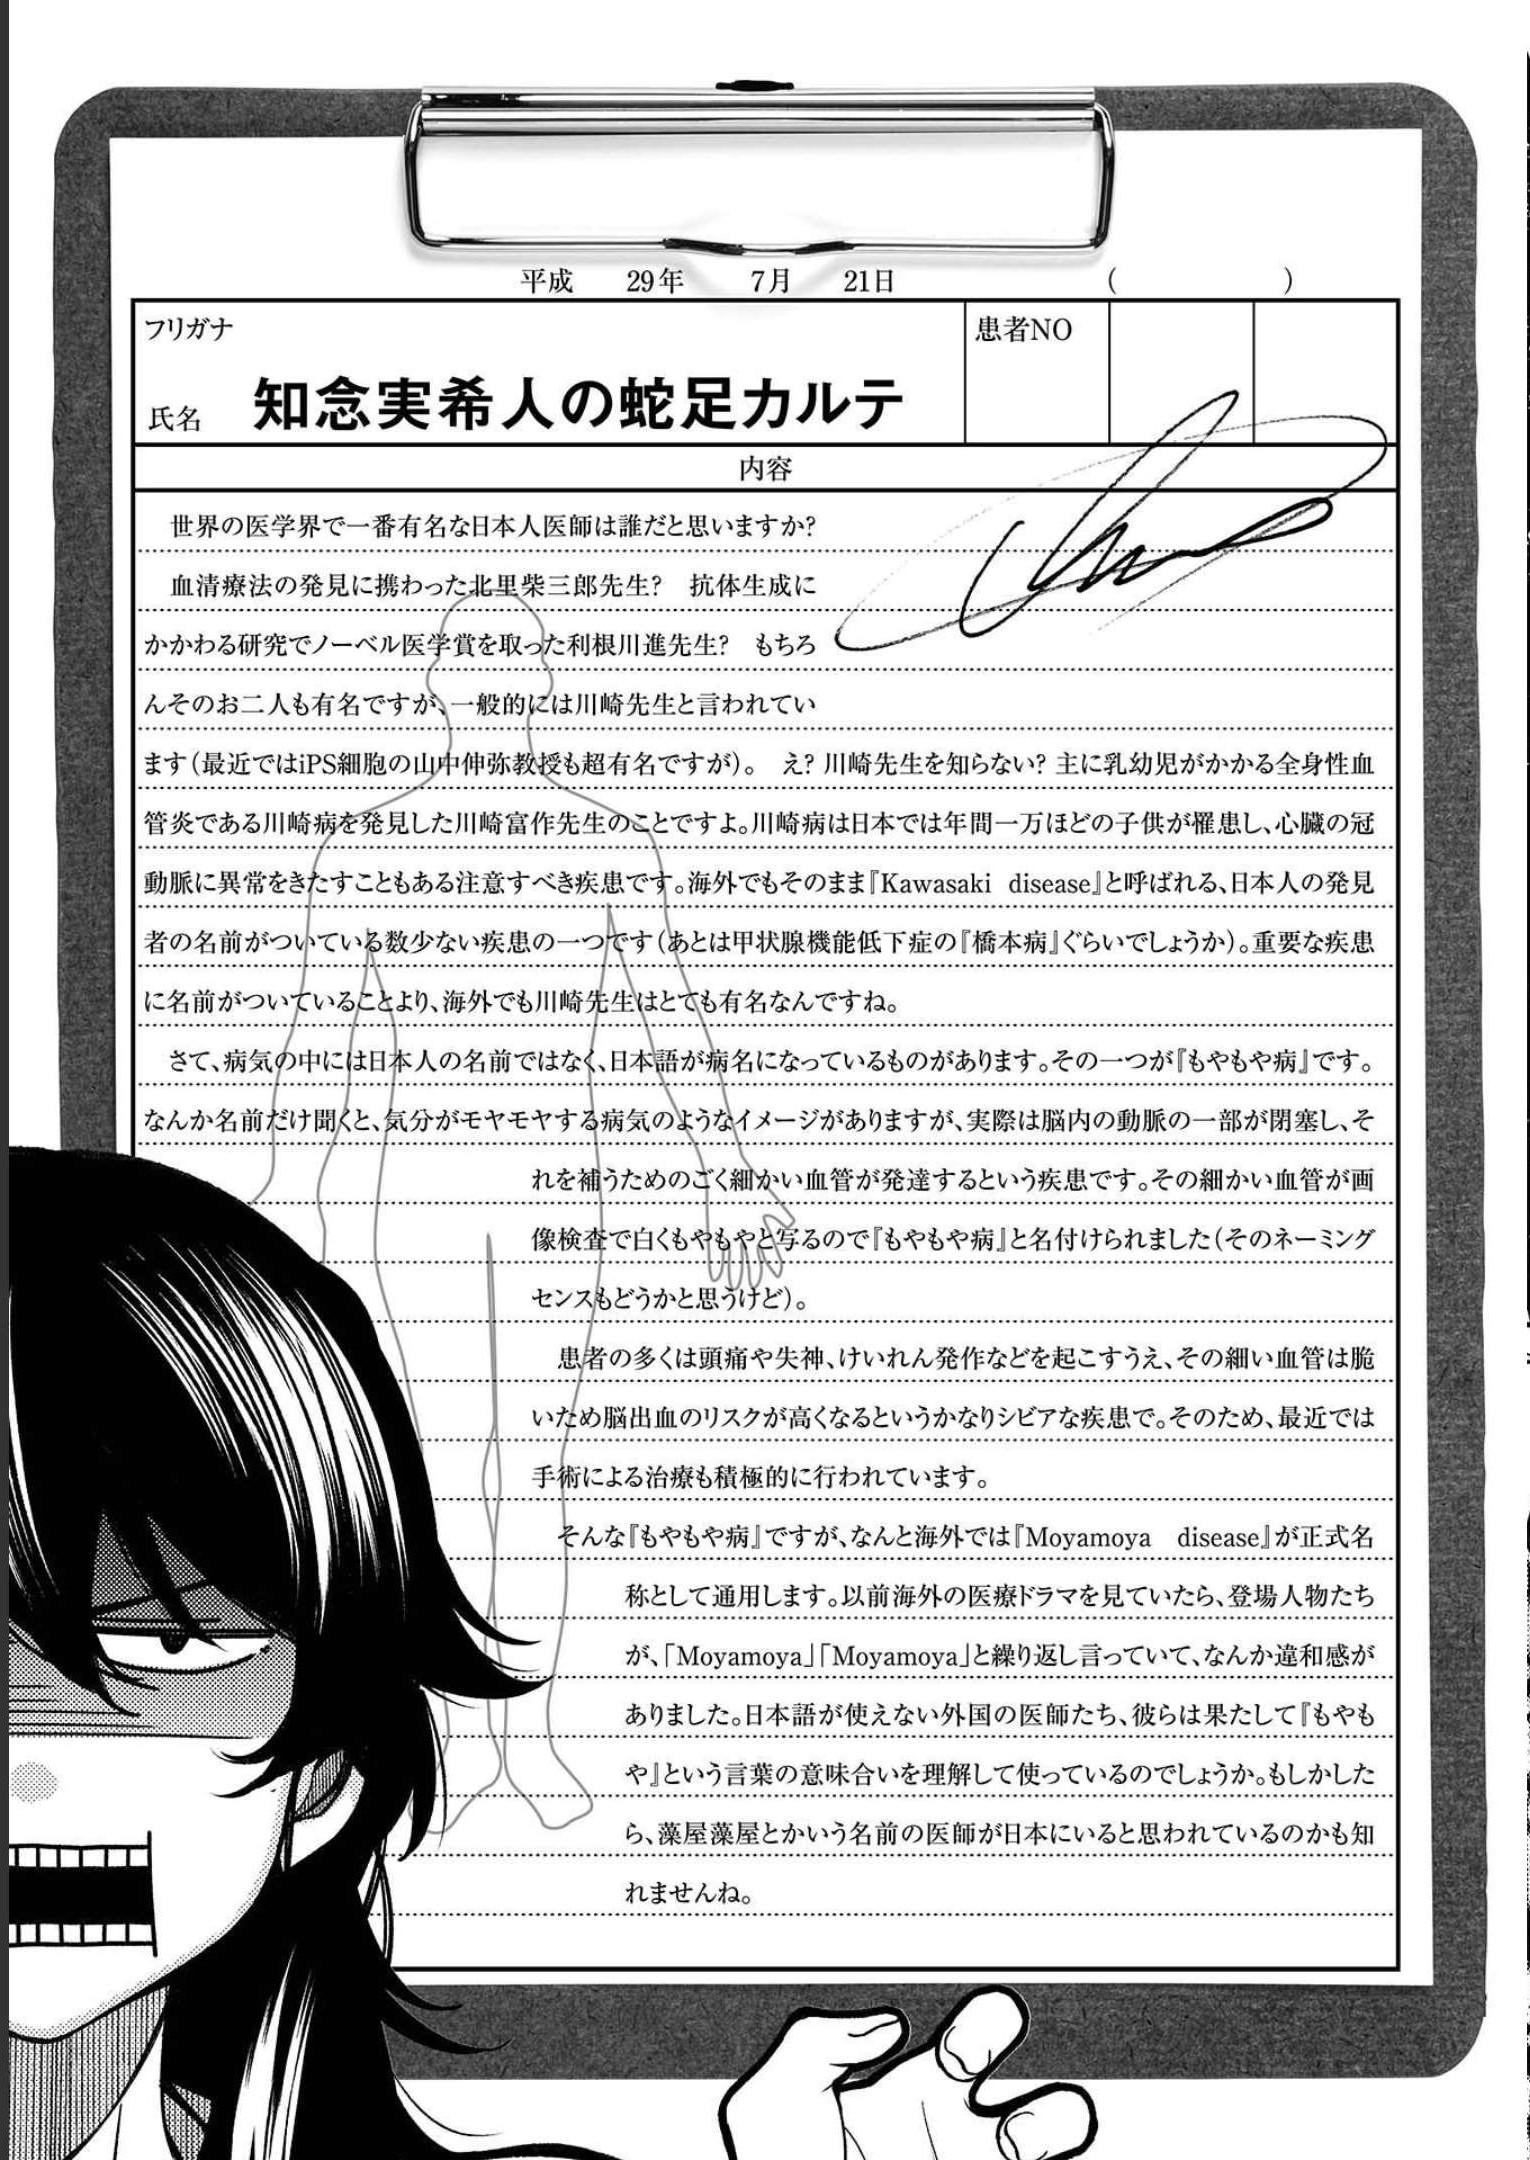 平成　29年　7月　21日　(　　　)
フリガナ
患者NO
氏名　知念実希人の蛇足カルテ
内容
世界の医学界で一番有名な日本人医師は誰だと思いますか?
血清療法の発見に携わった北里柴三郎先生?　抗体生成に
かかわる研究でノーベル医学賞を取った利根川進先生?　もちろ
んそのお二人も有名ですが、一般的には川崎先生と言われてい
ます(最近ではiPS細胞の山中伸弥教授も超有名ですが)。　え? 川崎先生を知らない? 主に乳幼児がかかる全身性血
管炎である川崎病を発見した川崎富作先生のことですよ。川崎病は日本では年間一万ほどの子供が罹患し、心臓の冠
動脈に異常をきたすこともある注意すべき疾患です。海外でもそのまま『Kawasaki disease』と呼ばれる、日本人の発見
者の名前がついている数少ない疾患の一つです(あとは甲状腺機能低下症の『橋本病』ぐらいでしょうか)。重要な疾患
に名前がついていることより、海外でも川崎先生はとても有名なんですね。
さて、病気の中には日本人の名前ではなく、日本語が病名になっているものがあります。その一つが『もやもや病』です。
なんか名前だけ聞くと、気分がモヤモヤする病気のようなイメージがありますが、実際は脳内の動脈の一部が閉塞し、そ
れを補うためのごく細かい血管が発達するという疾患です。その細かい血管が画
像検査で白くもやもやと写るので『もやもや病』と名付けられました(そのネーミング
センスもどうかと思うけど)。
患者の多くは頭痛や失神、けいれん発作などを起こすうえ、その細い血管は脆
いため脳出血のリスクが高くなるというかなりシビアな疾患で。そのため、最近では
手術による治療も積極的に行われています。
そんな『もやもや病』ですが、なんと海外では『Moyamoya disease』が正式名
称として通用します。以前海外の医療ドラマを見ていたら、登場人物たち
が、「Moyamoya」「Moyamoya」と繰り返し言っていて、なんか違和感が
ありました。日本語が使えない外国の医師たち、彼らは果たして『もやも
や』という言葉の意味合いを理解して使っているのでしょうか。もしかした
ら、藻屋藻屋とかいう名前の医師が日本にいると思われているのかも知
れませんね。